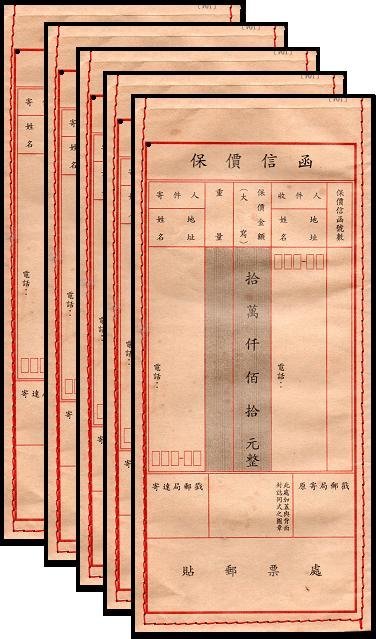 保價信函
保價信函號數
收件人
姓名
地址
電話：
保價金額
（大寫）
拾萬仟佰拾元整
重量
寄件人
姓名
地址
電話：
寄達局郵戳
此處加蓋與背面
封誌同式之圖章
原寄局郵戳
貼郵票處
寄
姓名
電話：
寄達
電話：
寄
電話：
寄
電話：
寄